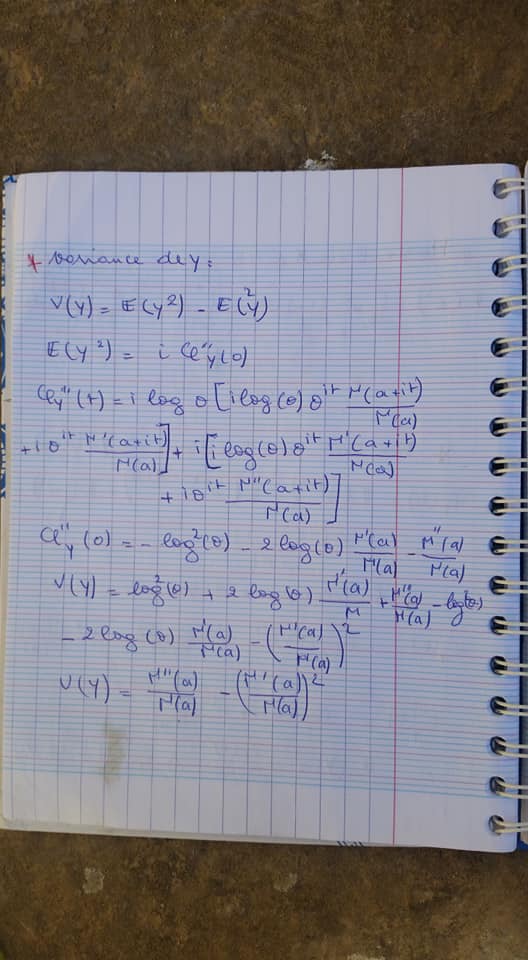 * Variance de Y:
V(Y) = E(Y²) - E²(Y)
E(Y²) = i φ''_Y(0)
φ_Y''(t) = i log θ [i log(θ) θ^{it} Γ(a+it)/Γ(a)
+ i θ^{it} Γ'(a+it)/Γ(a)] + i [i log(θ) θ^{it} Γ'(a+it)/Γ(a)
+ i θ^{it} Γ''(a+it)/Γ(a)]
φ''_Y(0) = - log²(θ) - 2 log(θ) Γ'(a)/Γ(a) - Γ''(a)/Γ(a)
V(Y) = log²(θ) + 2 log(θ) Γ'(a)/Γ + Γ''(a)/Γ(a) - log²(θ)
- 2 log(θ) Γ'(a)/Γ(a) - (Γ'(a)/Γ(a))²
V(Y) = Γ''(a)/Γ(a) - (Γ'(a)/Γ(a))²